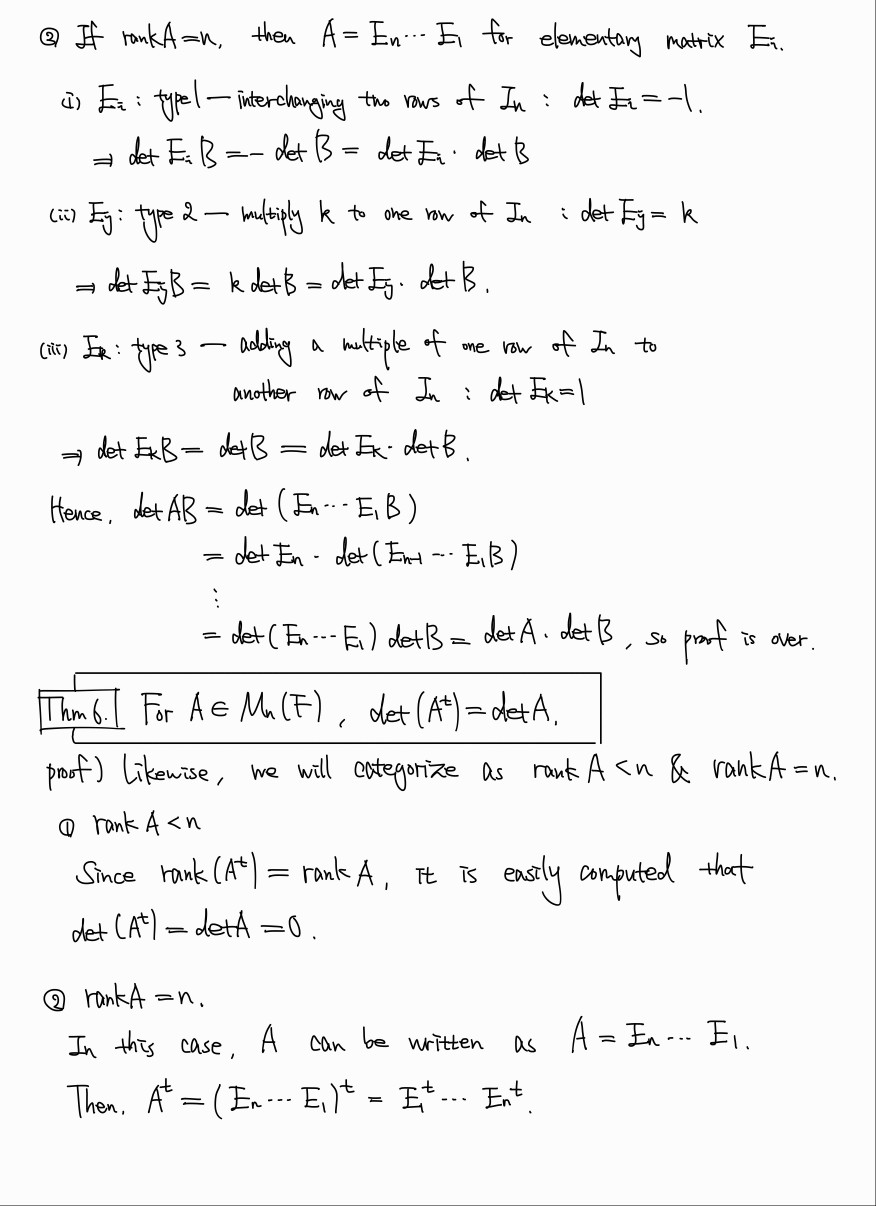 ② If rank A = n, then A = En ··· E1 for elementary matrix Ei.
(i) Ei : type 1 — interchanging two rows of In : det Ei = -1.
⇒ det Ei B = - det B = det Ei · det B
(ii) Ej : type 2 — multiply k to one row of In : det Ej = k
⇒ det Ej B = k det B = det Ej · det B.
(iii) Ek : type 3 — adding a multiple of one row of In to
another row of In : det Ek = 1
⇒ det Ek B = det B = det Ek · det B.
Hence, det AB = det (En ··· E1 B)
= det En · det (En-1 ··· E1 B)
⋮
= det (En ··· E1) det B = det A · det B, so proof is over.
Thm 6. For A ∈ Mn(F), det (Aᵗ) = det A.
proof) Likewise, we will categorize as rank A < n & rank A = n.
① rank A < n
Since rank (Aᵗ) = rank A, it is easily computed that
det (Aᵗ) = det A = 0.
② rank A = n.
In this case, A can be written as A = En ··· E1.
Then, Aᵗ = (En ··· E1)ᵗ = E1ᵗ ··· Enᵗ.